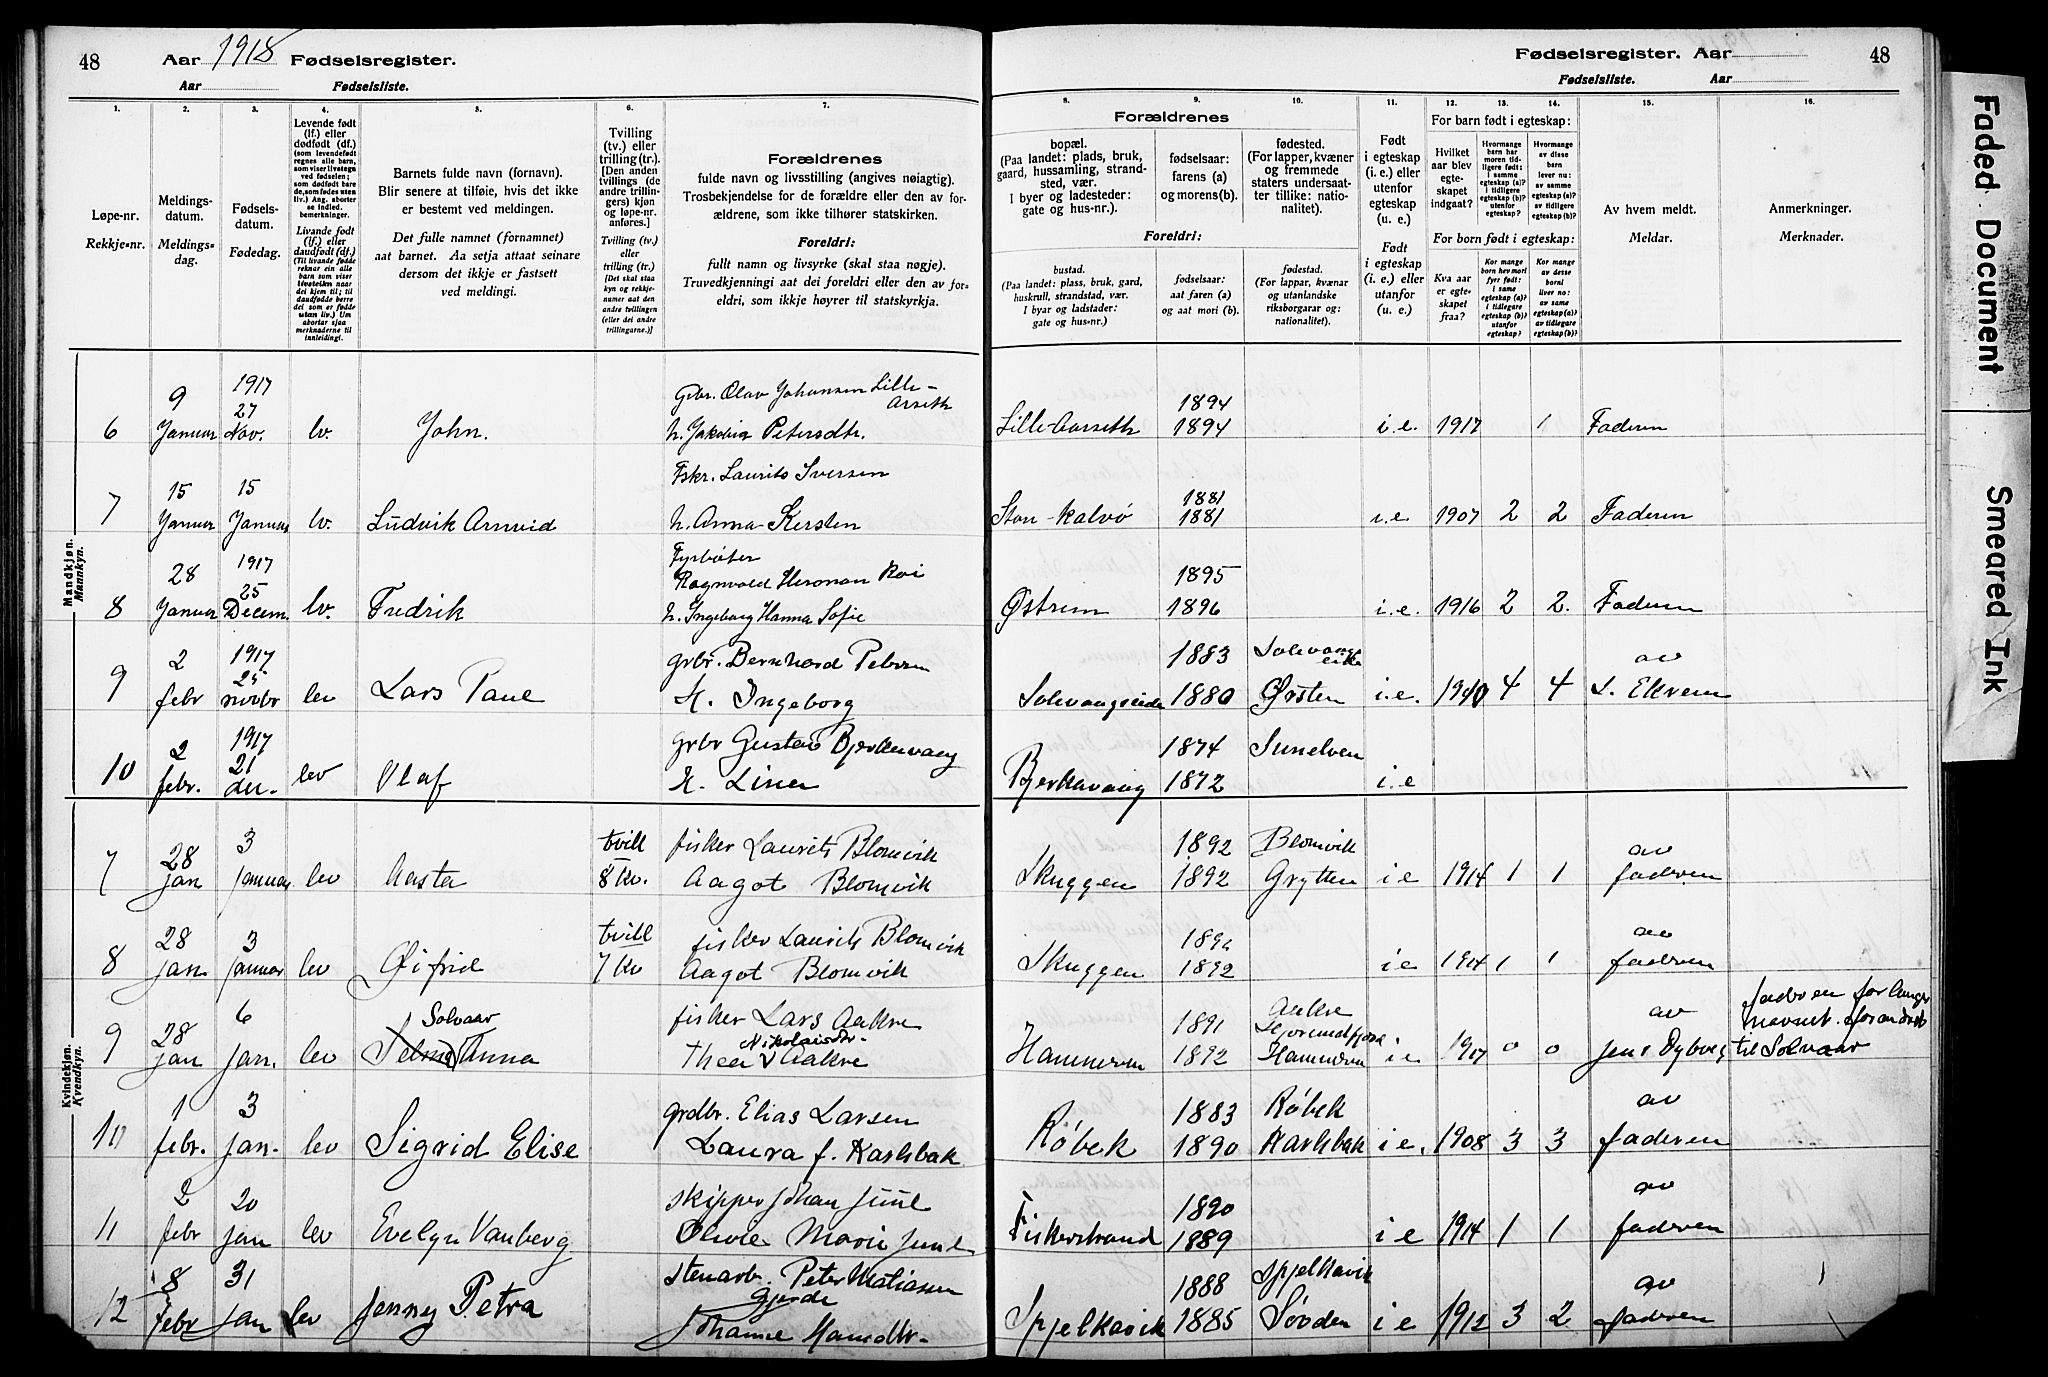 48
Aar 1918 Fødselsregister.
Aar Fødselsliste.
1.
2.
3.
4.
5.
6.
7.
Løpe-nr.
Rekkje-nr.
Meldings-
datum.
Meldings-
dag.
Fødsels-
datum.
Fødedag.
Levende født
(lf.) eller
dødfødt (df.)
(som levendefødt
regnes alle barn,
som viser livstegn
ved fødselen;
som dødfødt bare
de, som er føds uten
liv.) Ang. aborter
se indled.
bemerkninger.
Livande født
(lf.) eller
daudfødt (df.)
(Til livande fødde
reknar ein alle
barn som viser
livsteikn naar
dei kjem til; til
daudfødde berre
dei som er fødde
utan liv.) Um
abortar sjaa
merknaderne til
innleidingi.
Barnets fulde navn (fornavn).
Blir senere at tilføie, hvis det ikke
er bestemt ved meldingen.
Det fulle namnet (fornamnet)
aat barnet. Aa setja attaat seinare
dersom det ikkje er fastsett
ved meldingi.
Tvilling
(tv.) eller
trilling (tr.).
[Den anden
tvillings (de
andre trillin-
gers) kjøn
og løpe-nr.
anføres.]
Tvilling (tv.)
eller
trilling (tr.)
[Det skal staa
kyn og rekkje-
numer aat den
andre tvillingen
(eller dei andre
trillingarne.)]
Forældrenes
fulde navn og livsstilling (angives nøiagtig).
Trosbekjendelse for de forældre eller den av for-
ældrene, som ikke tilhører statskirken.
Foreldri:
fullt namn og livsyrke (skal staa nøgje).
Truvedkjenningi aat dei foreldri eller den av for-
eldri, som ikkje høyrer til statskyrkja.
Mandkjøn.
Mannkyn.
6
9
Januar
1917
27
Nov.
lv.
John.
Grbr. Olav Johansen Lille-
Arseth
h. Jakobia Petersdtr.
7
15
Januar
15
Januar
lv.
Ludvik Arnvid
Fskr. Laurits Iversen
h. Anna Kersten
8
28
Januar
1917
25
Decem.
lv.
Fredrik
Fyrbøter
Ragnvald Herman Roi
h. Ingeborg Hanna Sofie
9
2
febr
1917
25
novbr
lev
Lars Paul
grbr. Bernhard Petersen
H. Ingeborg
10
2
febr.
1917
21
des.
lev
Olaf
grbr Gustav Bjerkevaag
H. Lina
Kvindekjøn.
Kvendkyn.
7
28
jan
3
januar
lev
Aasta
tvill
8 kv.
fisker Laurits Blomvik
Aagot Blomvik
8
28
jan.
3
januar
lev
Øifrid
tvill
7 kv
fisker Laurits Blomvik
Aagot Blomvik
9
28
jan
6
jan.
lev
Solvaar
Selma Anna
fisker Lars Aakre
Nikolaisdtr.
Thea Aakre
10
1
febr.
3
jan.
lev
Sigrid Elise
grdbr. Elias Larsen
Laura f. Karlsbak
11
2
febr
20
jan
lev
Evelyn Vanberg
skipper Johan Juul
Olivie Marie Juul
12
8
febr
31
jan
lev
Jenny Petra
stenarb. Peter Matiassen
Gjerde
Johanne Hansdtr.
48
Fødselsregister. Aar
Fødselsliste. Aar
8.
9.
10.
11.
12.
13.
14.
15.
16.
Forældrenes
bopæl.
(Paa landet: plads, bruk,
gaard, hussamling, strand-
sted, vær.
I byer og ladesteder:
gate og hus-nr.).
fødselsaar:
farens (a)
og morens (b).
fødested.
(For lapper, kvæner
og fremmede
staters undersaat-
ter tillike: natio-
nalitet).
Foreldri:
bustad.
(Paa landet: plass, bruk, gard,
huskrull, strandstad, vær.
I byar og ladstader:
gate og hus-nr.)
fødselsaar:
aat faren (a)
og aat mori (b).
fødestad.
(For lappar, kvænar
og utanlandske
riksborgarar og:
nationalitet).
Født
i egteskap
(i. e.) eller
utenfor
egteskap
(u. e.)
Født
i egteskap
(i. e.) eller
utanfor
(u. e.)
For barn født i egteskap:
Hvilket
aar blev
egte-
skapet
indgaat?
Hvormange
barn har
moren tid-
ligere født:
i samme
egteskap (a)?
i tidligere
egteskap (b)?
utenfor
egteskap?
Hvormange
av disse
barn
lever nu:
av samme
egteskap (a)?
av tidligere
egteskap (b)?
For born født i egteskap:
Kva aar
er egte-
skapet
fraa?
Kor mange
born hev mori
fyrr født:
i same
egteskap (a)?
i tidlegare
egteskap (b)?
utanfor
egteskap?
Kor mange
av desse
borni
liver no:
av same
egteskap (a)?
av tidlegare
egteskap (b)?
Av hvem meldt.
Meldar.
Anmerkninger.
Merknader.
Lille-Aarseth
1894
1894
i.e.
1917
1
Faderen
Stor-Kalvø
1881
1881
i.e
1907
2
2
Faderen
Østrem
1895
1896
i.e.
1916
2
2.
Faderen
Solevaagseide
1883
1880
Solevaags
eide
Ørsten
i.e.
1910
4
4
av
L. Ekrem
Bjerkavaag
1874
1872
Sunelven
i.e
Skuggen
1892
1892
Blomvik
Grytten
i e
1914
1
1
av
faderen
Skuggen
1892
1892
i e
1914
1
1
av
faderen
Hammeren
1891
1892
Aakre
Hjørundfjord
Hammeren
i e
1917
0
0
av
Jens Dyborg
faderen forlanger
navnet forandret
til Solvaar
Røbek
1883
1890
Røbek
Karlsbak
i e.
1908
3
3
av
faderen
Fiskerstrand
1890
1889
i e
1914
1
1
av
faderen
Spjelkavik
1888
1885
Spjelkavik
Søvden
i e
1912
3
2
av
faderen
Faded Document
Smeared Ink